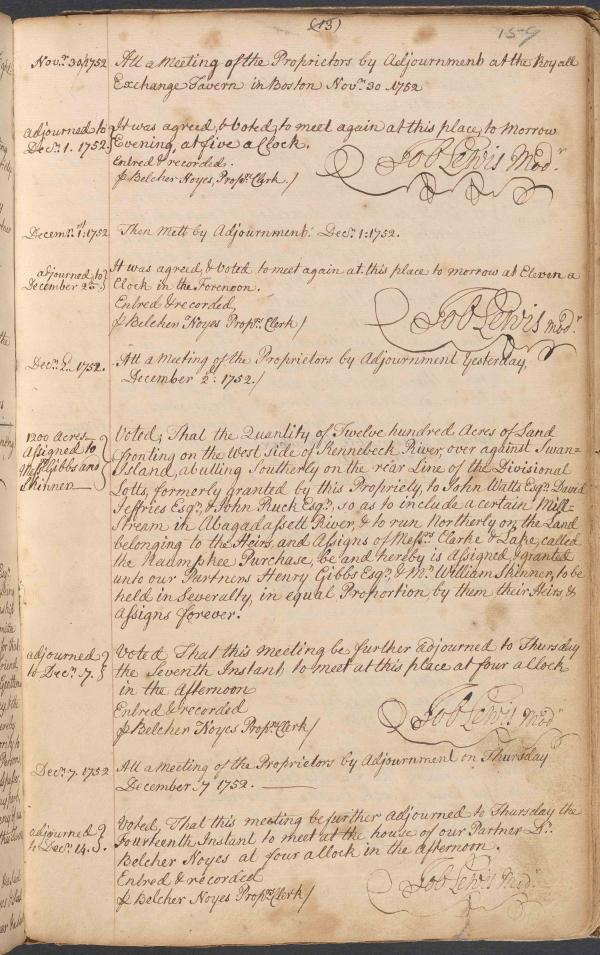 (13)
159
Novr. 30/1752 Att a Meeting of the Proprietors by Adjournment at the Royall
Exchange Tavern in Boston Novr. 30. 1752
adjourned to It was agreed, & Voted, to meet again at this place, to morrow
Decr. 1. 1752. Evening, at five a Clock.
Entred & recorded.
Job Lewis Modr.
⅌ Belcher Noyes, Propr. Clerk /
Decemr. 1st: 1752 Then Mett by Adjournment. Decr. 1: 1752.
adjourned to It was agreed & Voted to meet again at this place to morrow at Eleven a
December 2d. Clock in the Forenoon.
Entred & recorded,
Job Lewis Modr.
⅌ Belcher Noyes Proprs. Clerk /
Decr. 2. 1752. Att a Meeting of the Proprietors by Adjournment Yesterday,
December 2: 1752. /
1200 Acres Voted; That the Quantity of Twelve hundred Acres of Land
Assigned to fronting on the west Side of Kennebeck River, over against Swan=
Messrs Gibbs and Island, abutting Southerly on the rear Line of the Divisional
Skinner Lotts, formorly granted by this Propriety, to John Watts Esqr. David
Jeffries Esqr. & John Ruck Esqr., so as to include a certain Mill
Stream in Abagadassett River, & to run Northerly on the Land
belonging to the Heirs, and Assigns of Messrs. Clarke & Lake, called
the Naumphee Purchase, be and hereby is assigned & granted
unto our Partners Henry Gibbs Esqr., & Mr. William Skinner, to be
held in Severalty, in equal Proportion by them their Heirs, &
Assigns forever.
adjourned Voted That this meeting be further adjourned to Thursday
to Decr. 7. the Seventh Instant to meet at this place at four a Clock
in the afternoon
Entred & recorded
Job Lewis Modr
⅌ Belcher Noyes Propr. Clerk /
Decr. 7. 1752 Att a Meeting of the Proprietors by Adjournment on Thursday
December 7 1752.
adjourned Voted, That this meeting be further adjourned to Thursday the
to Decr. 14. Fourteenth Instant to meet at the house of our Partner Dr.
Belcher Noyes at four a Clock in the afternoon.
Entred & recorded
Job Lewis Modr.
⅌ Belcher Noyes Proprs. Clerk /